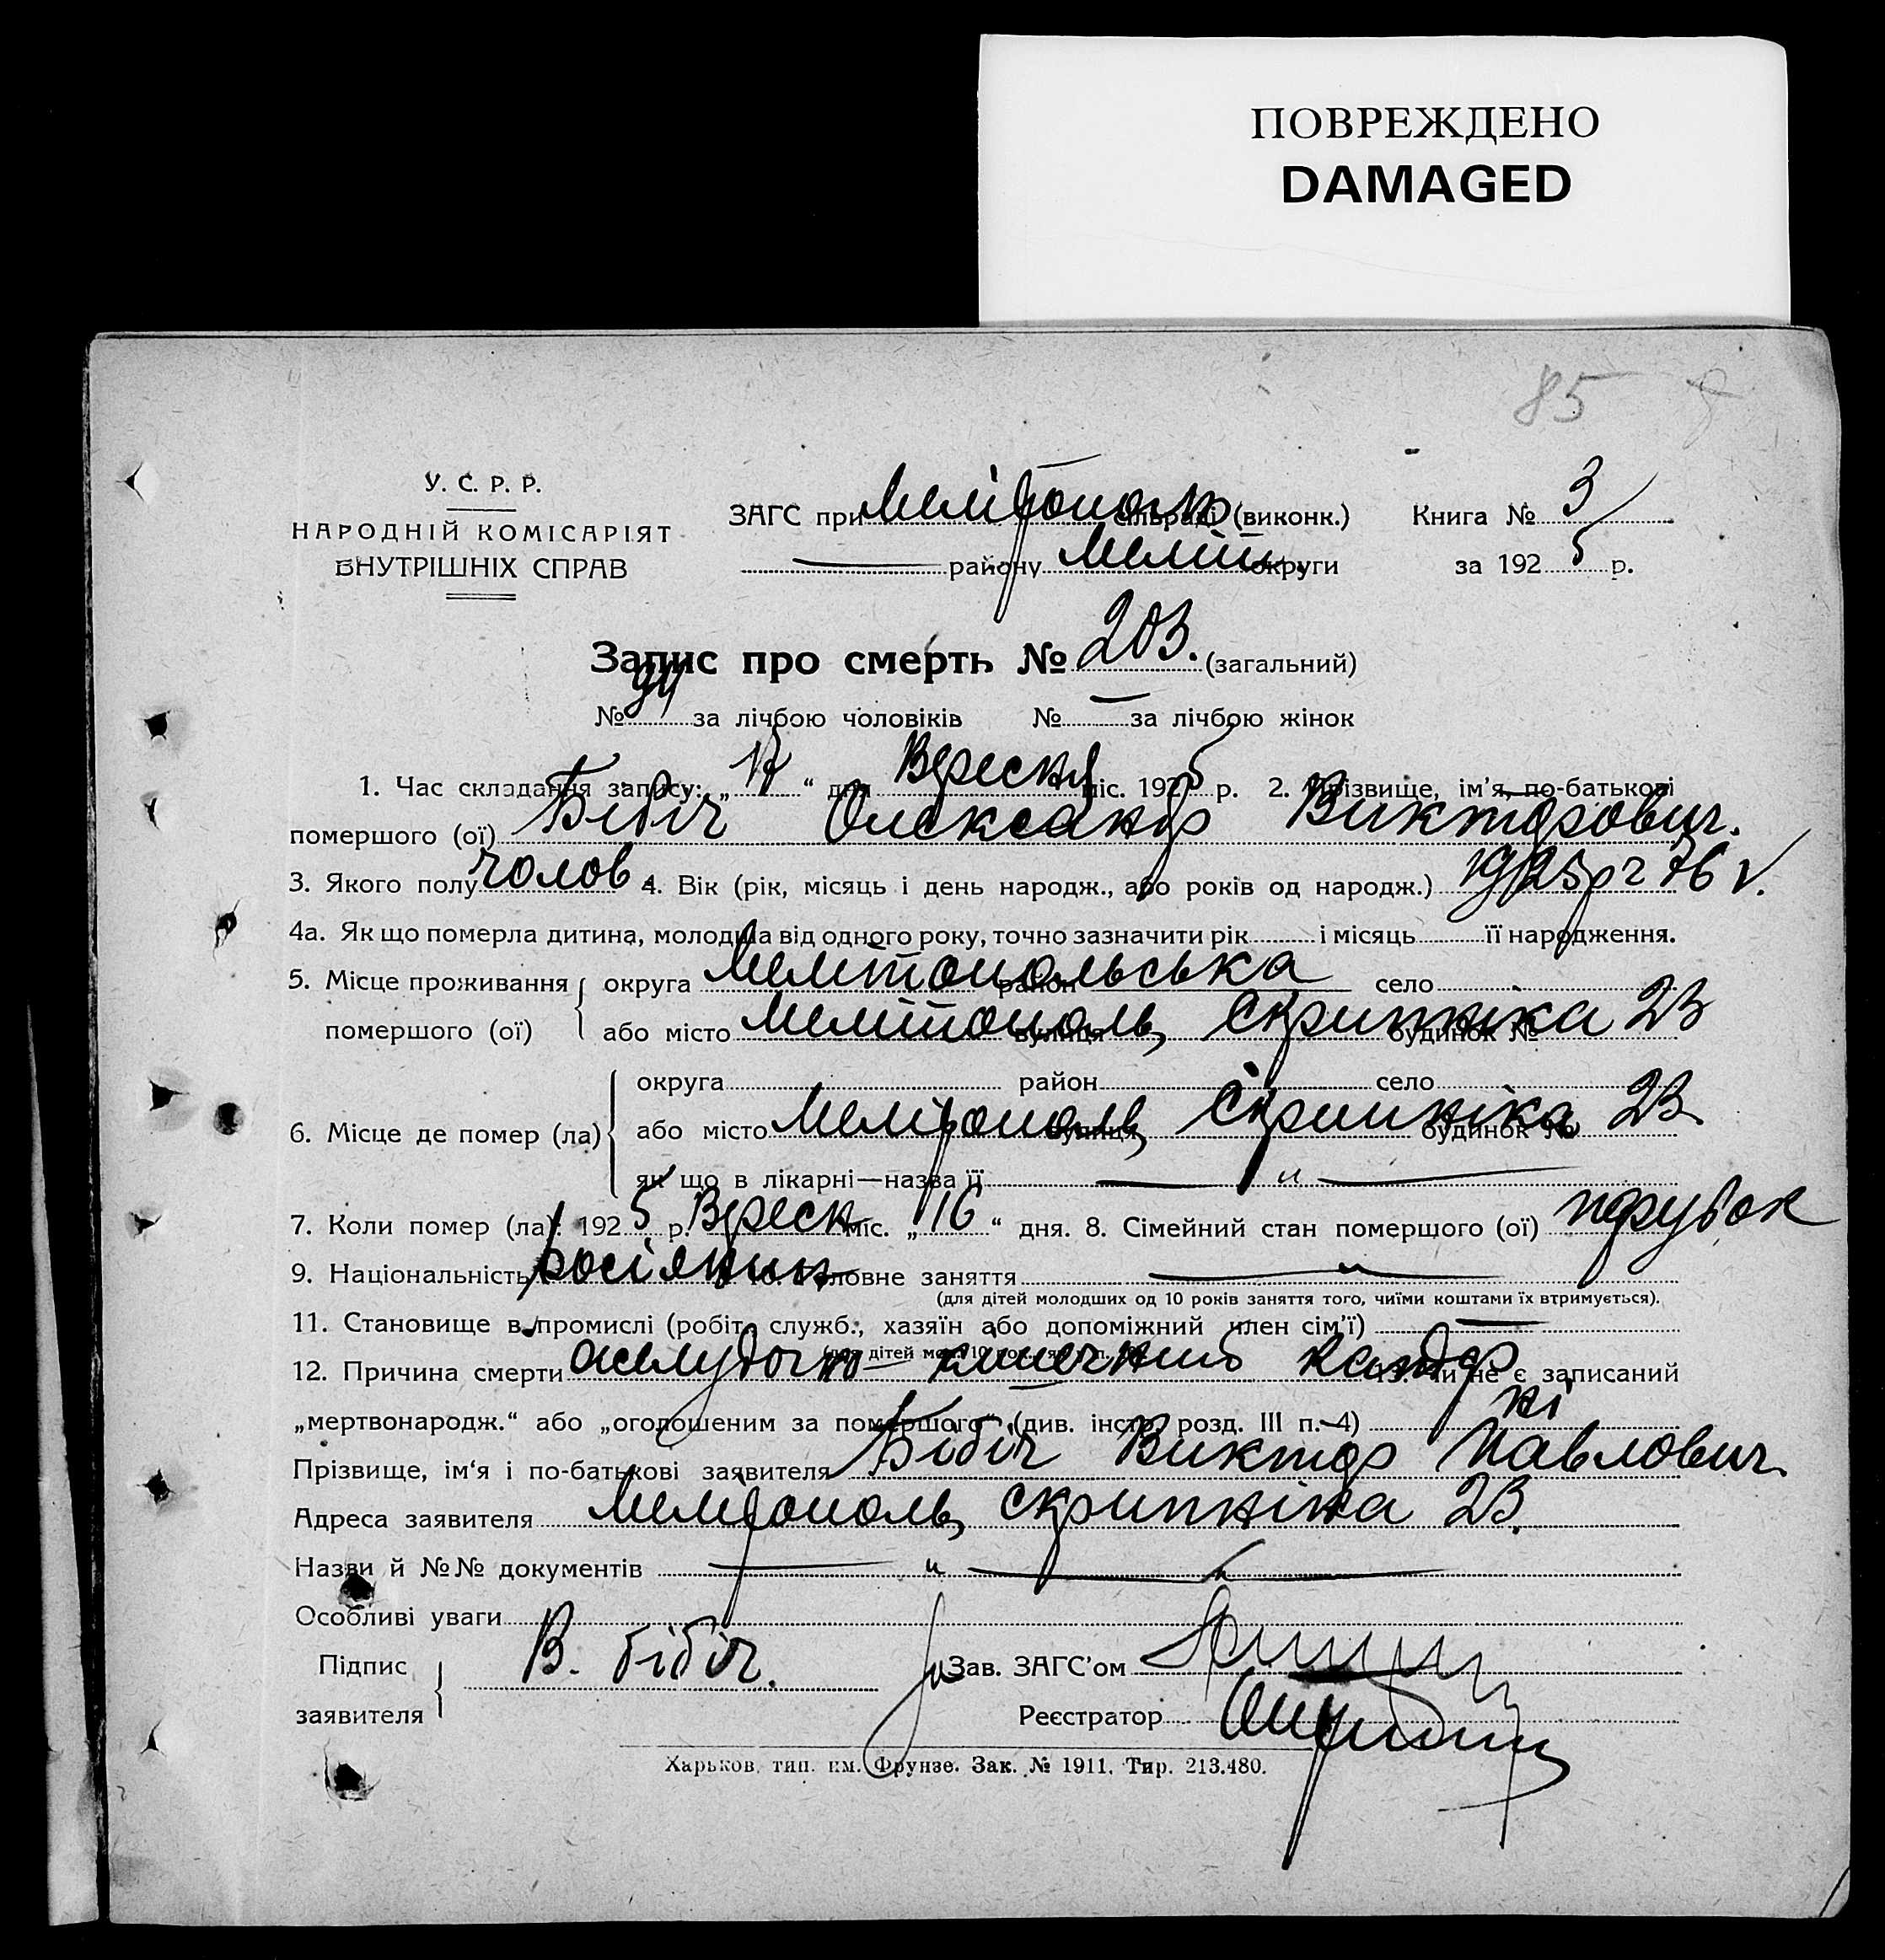 ПОВРЕЖДЕНО
DAMAGED
85
У. С. Р. Р.
НАРОДНІЙ КОМІСАРІЯТ
ВНУТРІШНІХ СПРАВ
ЗАГС при Мелітополь сільраді (виконк.) Книга № 3
району Меліт округи за 1925 р.
Запис про смерть № 203. (загальний)
№ за лічбою чоловіків № — за лічбою жінок
1. Час складання запису: „ “ дня Вересня міс. 1925 р. 2. Прізвище, ім'я, по-батькові
помершого (ої) Бібіч Олександр Викторович.
3. Якого полу чолов 4. Вік (рік, місяць і день народж., або років од народж.) 1925р
4а. Як що померла дитина, молодша від одного року, точно зазначити рік і місяць її народження.
5. Місце проживання округа Мелітопольська район село
помершого (ої) або місто Мелітополь, вулиця Скрипніка будинок № 23
округа район село
6. Місце де помер (ла) або місто Мелітополь, вулиця Скрипніка будинок № 23
як що в лікарні—назва її — „ —
7. Коли помер (ла): 1925 р. Вересн міс. „16“ дня. 8. Сімейний стан померщого (ої) парубок
9. Національність росіянин 10. Головне заняття — „ —
(для дітей молодших од 10 років заняття того, чиїми коштами їх втримується).
11. Становище в промислі (робіт., служб., хазяїн або допоміжний член сім'ї) —
12. Причина смерти желудочно кишечний катар 13. Чи не є записаний
„мертвонародж.“ або „оголошеним за помершого“ (див. інстр. розд. III п. 4) ні
Прізвище, ім'я і по-батькові заявителя Бібіч Виктор Павлович.
Адреса заявителя Мелітополь, Скрипніка 23.
Назви й №№ документів — „ —
Особливі уваги
Підпис В. Бібіч. Зав. ЗАГС'ом
заявителя Реєстратор
Харьков, тип. им. Фрунзе. Зак. № 1911. Тир. 213.480.